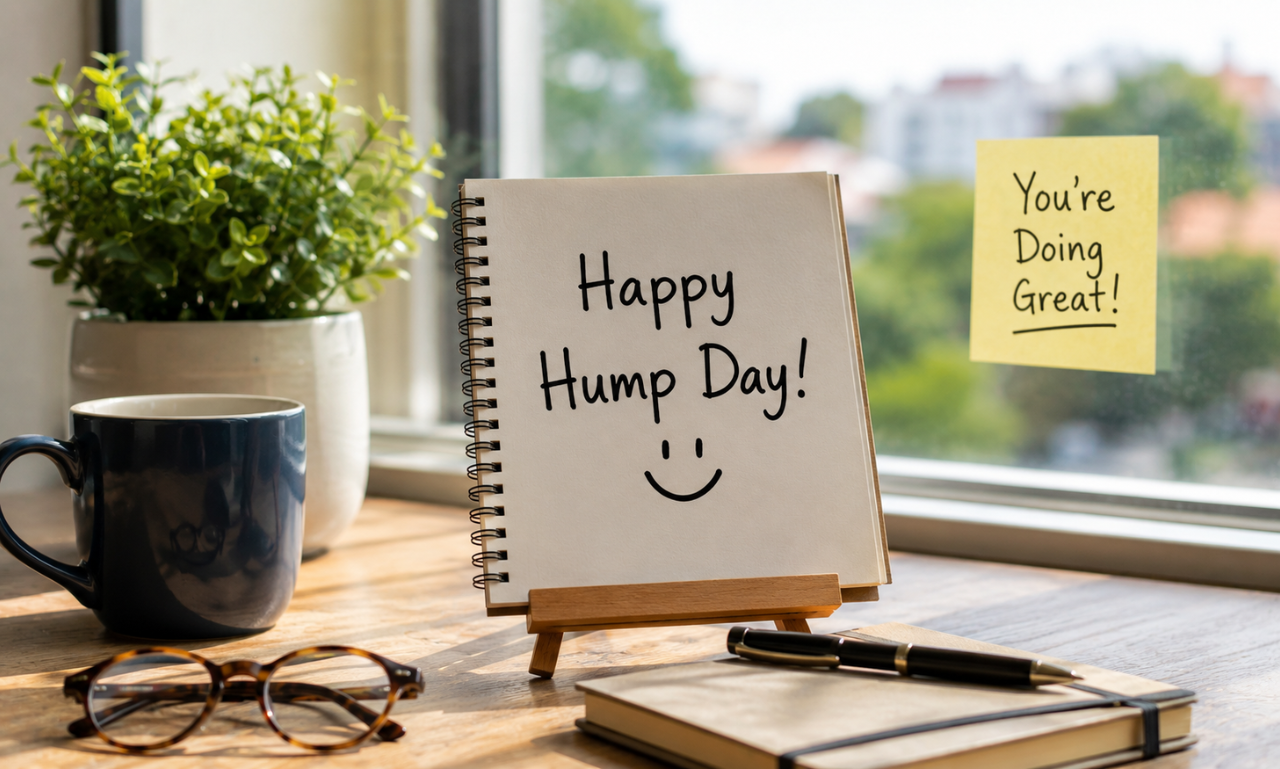 Happy
Hump Day!
You're
Doing
Great!